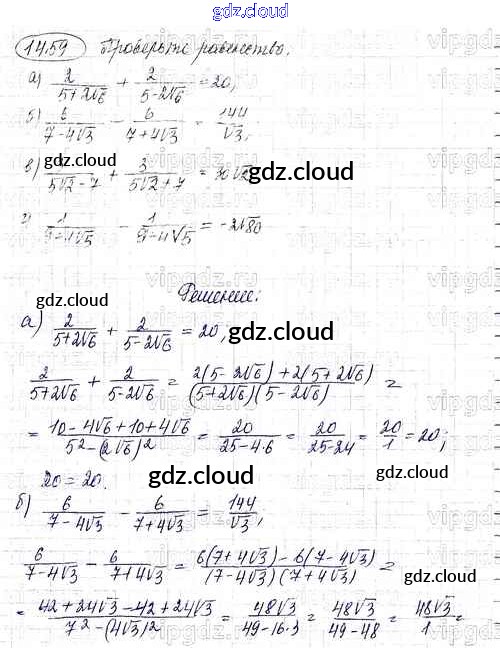 gdz.cloud
14.59 Проверьте равенство.
а) 2/(5+2√6) + 2/(5-2√6) = 20;
б) 6/(7-4√3) - 6/(7+4√3) = 144/√3;
gdz.cloud
в) 3/(5√2-7) + 3/(5√2+7) = 30√2
gdz.cloud
г) 1/(9+4√5) - 1/(9-4√5) = -2√80
Решение:
gdz.cloud
а) 2/(5+2√6) + 2/(5-2√6) = 20;
gdz.cloud
2/(5+2√6) + 2/(5-2√6) = (2(5-2√6)+2(5+2√6))/((5+2√6)(5-2√6)) =
= (10-4√6+10+4√6)/(5²-(2√6)²) = 20/(25-4·6) = 20/(25-24) = 20/1 = 20;
20 = 20.
gdz.cloud
gdz.cloud
б) 6/(7-4√3) - 6/(7+4√3) = 144/√3;
6/(7-4√3) - 6/(7+4√3) = (6(7+4√3)-6(7-4√3))/((7-4√3)(7+4√3)) =
gdz.cloud
gdz.cloud
= (42+24√3-42+24√3)/(7²-(4√3)²) = 48√3/(49-16·3) = 48√3/(49-48) = 48√3/1 =
gdz.cloud